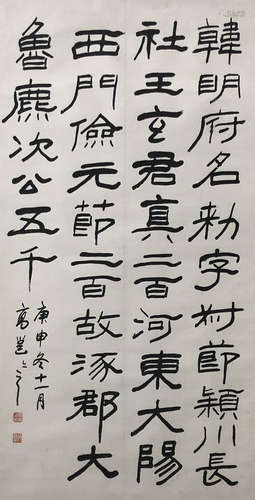 韓明府名勑字叔節潁川長
社王玄君真二百河東大陽
西門儉元節二百故涿郡大
魯麃次公五千
庚申冬十一月
高邕之